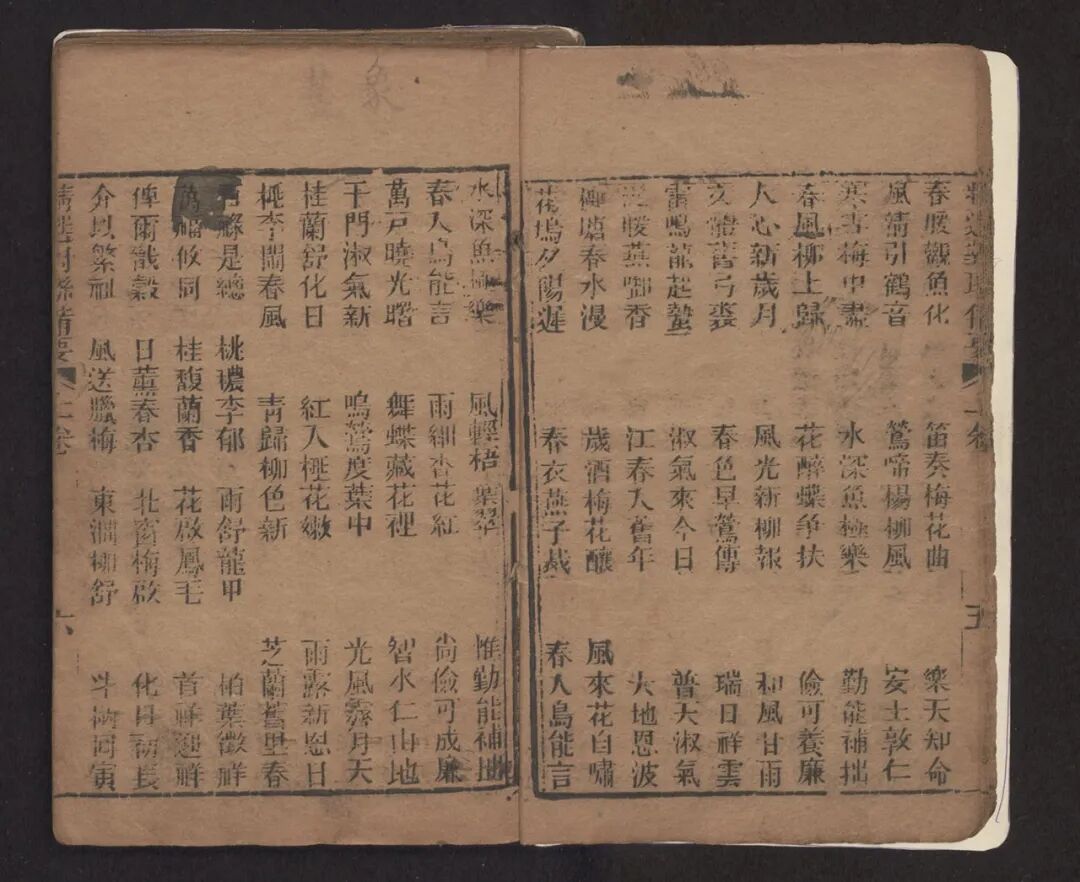 五
春暖觀魚化 笛奏梅花曲 樂天知命
風引鶴音 鶯啼楊柳風 安土敦仁
寒梅中盡 水深魚極樂 勤能補拙
春風柳上歸 花醉蝶爭扶 儉可養廉
人心新歲月 風光新柳報 和風甘雨
舊弓裘 春色早鶯傳 瑞日祥雲
雷鳴龍起蟄 淑氣來今日 普天淑氣
暖燕啣香 江春入舊年 大地恩波
柳塘春水漫 歲酒梅花釀 風來花自嘯
花塢夕陽遲 春衣燕子裁 春入鳥能言
水深魚極樂 風輕梧葉翠 惟勤能補拙
春入鳥能言 雨細杏花紅 尚儉可成廉
萬戶曉光曙 舞蝶藏花裡 智水仁山地
千門淑氣新 鳴鶯度葉中 光風霽月天
桂蘭舒化日 紅入桃花嫩 雨露新恩日
桃李鬧春風 青歸柳色新 芝蘭舊里春
百祿是總 桃穠李郁 雨舒龍甲 柏葉徵祥
萬福攸同 桂馥蘭香 花啟鳳毛 首祥迎祥
俾爾戩穀 日薰春杏 北窗梅啟 化日初長
介以繁祉 風送臘梅 東澗柳舒 斗柄同寅
對聯精要 上卷 六
象